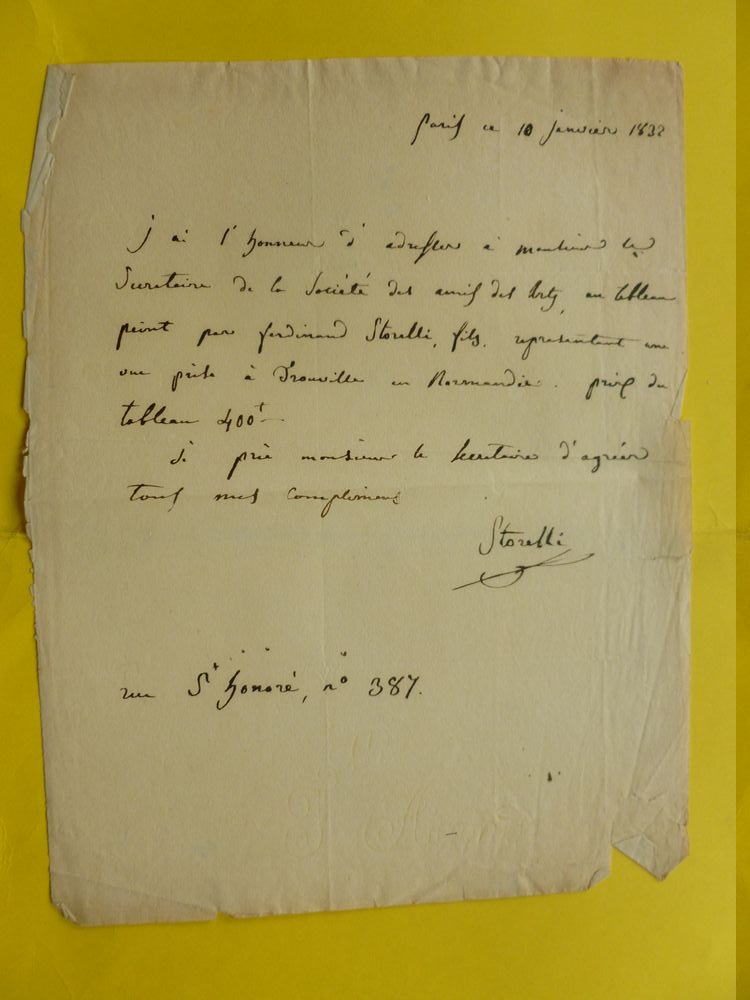 paris ce 10 janvier 1832
j'ai l'honneur d'adresser à monsieur le
Secretaire de la Société des amis des Arts, un tableau
peint par ferdinand Storelli, fils, representant une
vue prise à Trouville en Normandie. prix du
tableau 400f
Je prie monsieur le Secretaire d'agréer
tous mes complimens
Storelli
rue St honoré, n° 387.